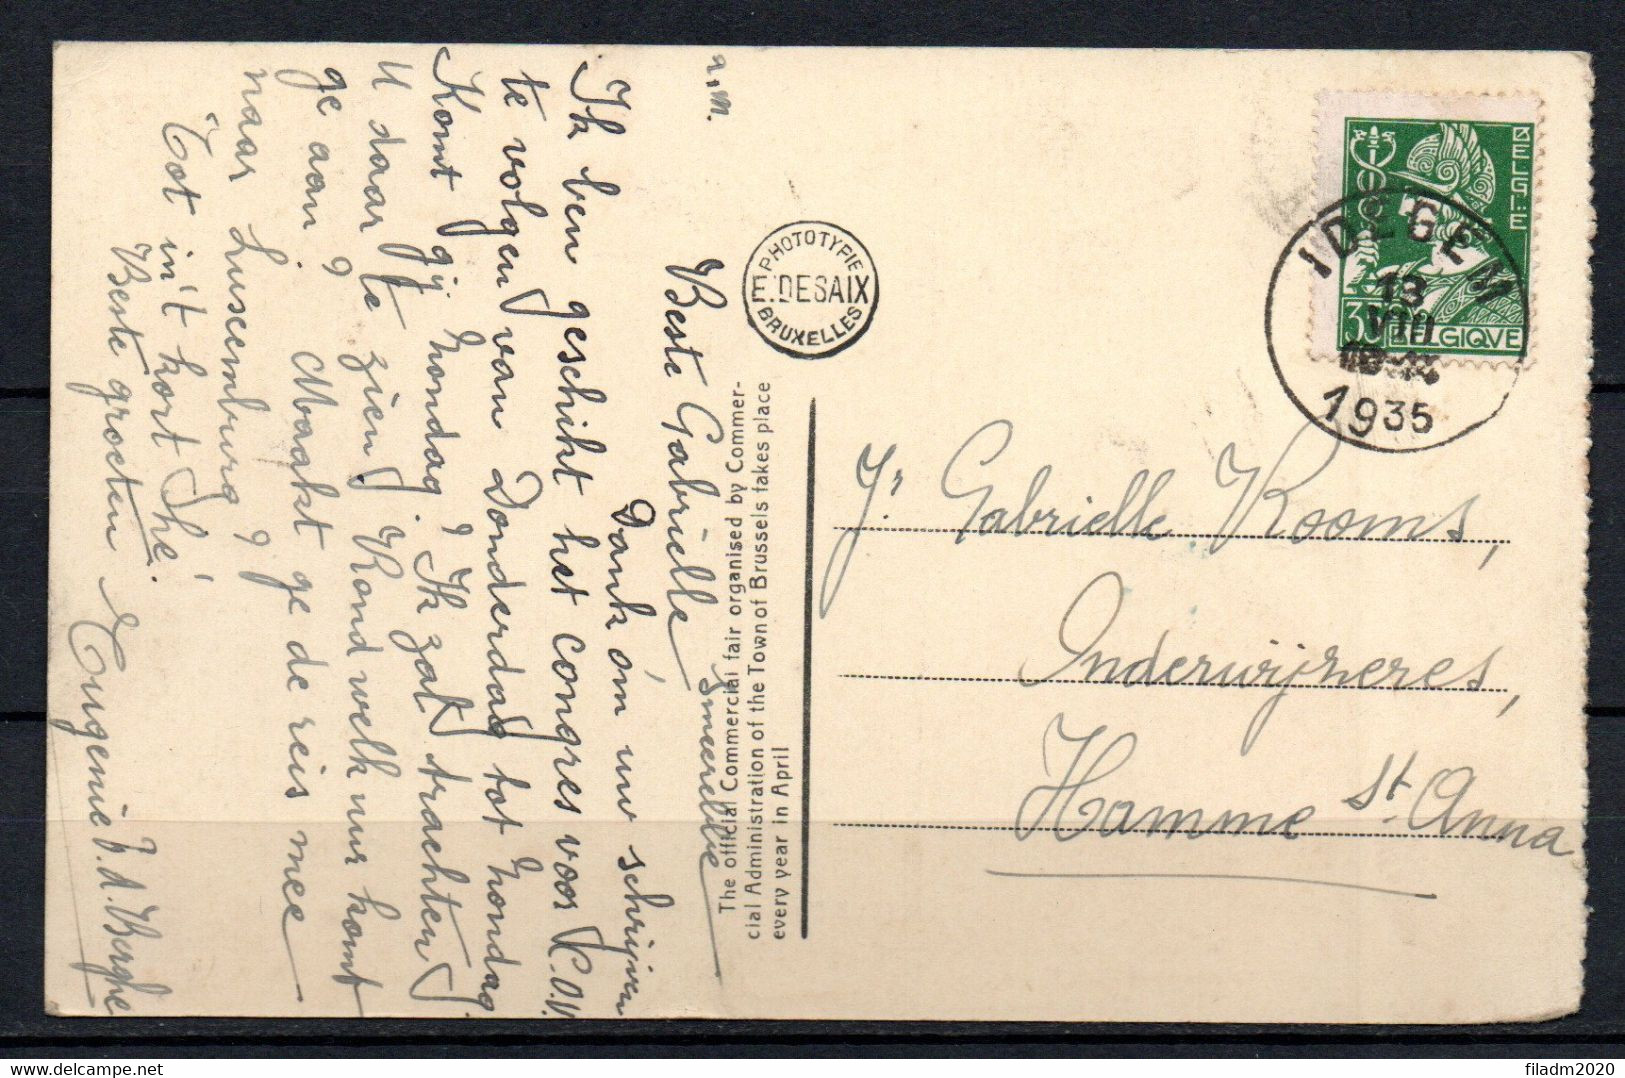 a.m.
Smeerebbe
Beste Gabrielle
Dank om uw schrijven
Ik ben geschikt het congres voor K.A.V.
te volgen van Donderdag tot Zondag.
Komt gij Zondag? Ik zal trachten
U daar te zien. Rond welk uur komt
ge aan? Maakt ge de reis mee
naar Luxemburg?
Tot in't kort Thé.
Beste groeten Eugenie V.d.Berghe
PHOTOTYPIE
E.DESAIX
BRUXELLES
The official Commercial fair organised by Commer-
cial Administration of the Town of Brussels takes place
every year in April
BELGIE
30 BELGIQVE
IDEGEM
13
VIII
1935
Jr Gabrielle Rooms,
Onderwijzeres,
Hamme St. Anna
filadm2020